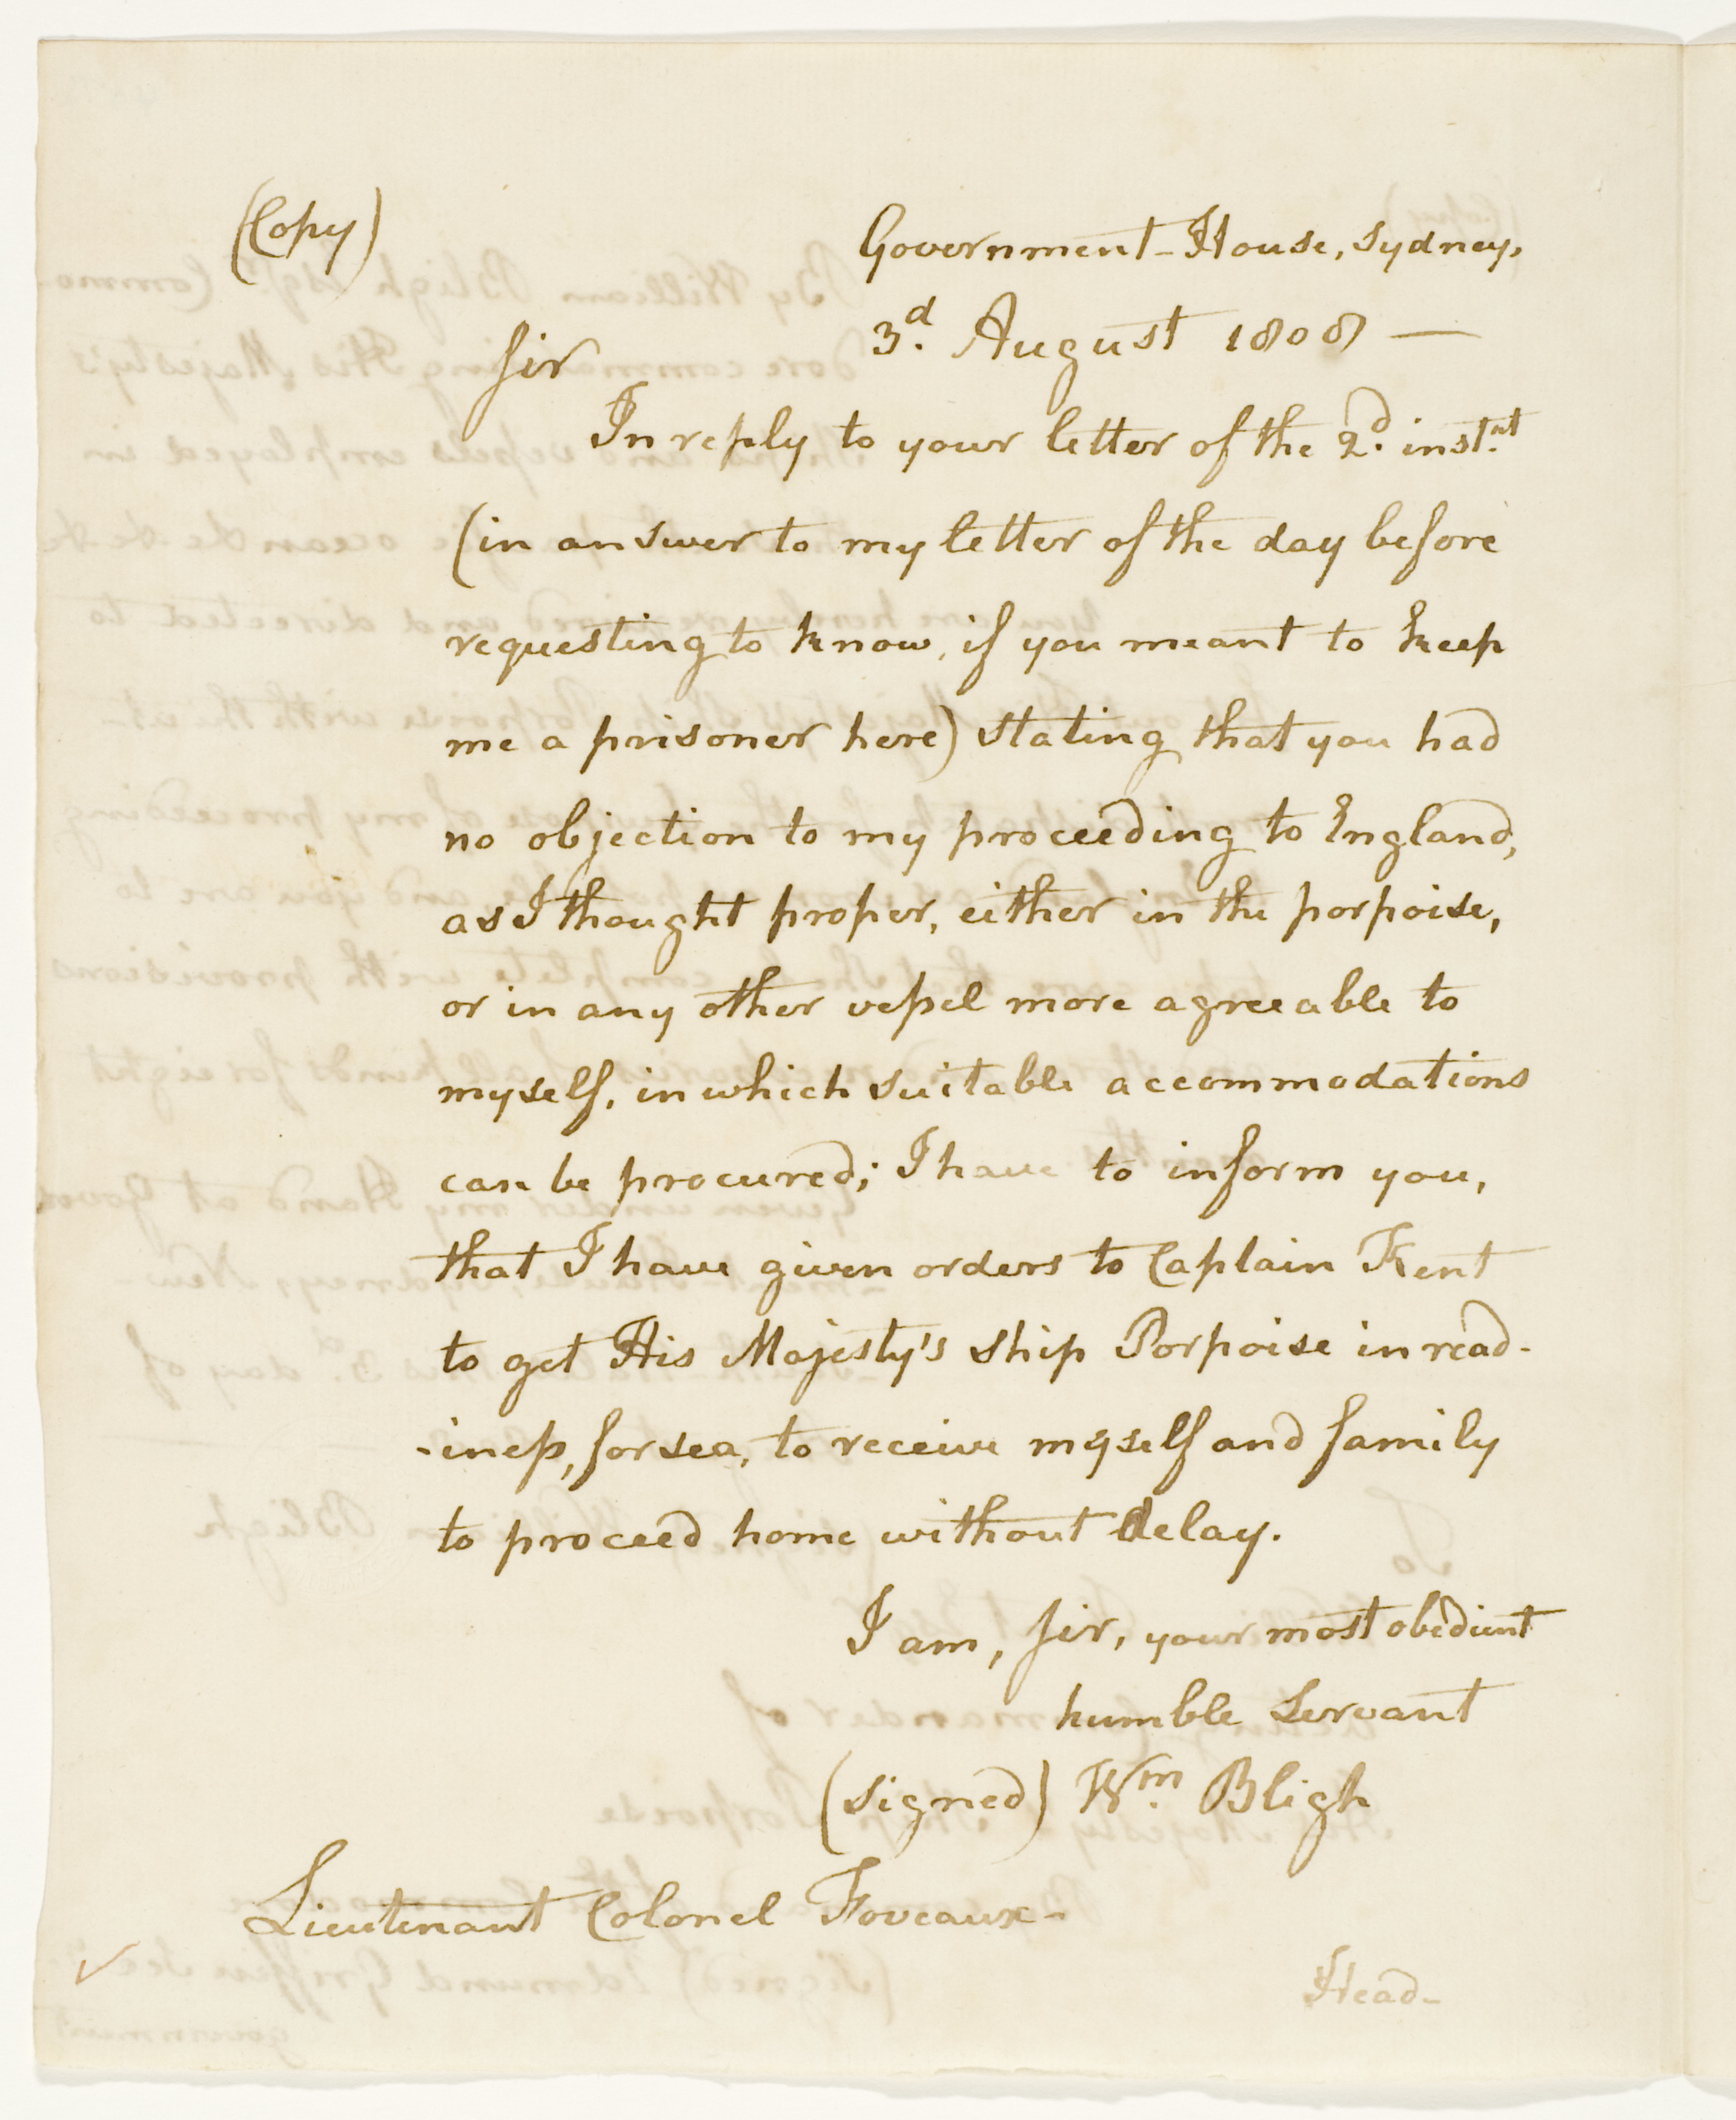 (Copy)
Government-House, Sydney,
3d. August 1808 —
Sir
In reply to your letter of the 2d. instnt.
(in answer to my letter of the day before
requesting to know, if you meant to keep
me a prisoner here) stating that you had
no objection to my proceeding to England,
as I thought proper, either in the porpoise,
or in any other vessel more agreeable to
myself, in which suitable accommodations
can be procured; I have to inform you,
that I have given orders to Captain Kent
to get His Majesty's ship Porpoise in read-
-iness, for sea, to receive myself and family
to proceed home without delay.
I am, Sir, your most obedient
humble Servant
(signed) Wm. Bligh
Lieutenant Colonel Foveaux-
Head-